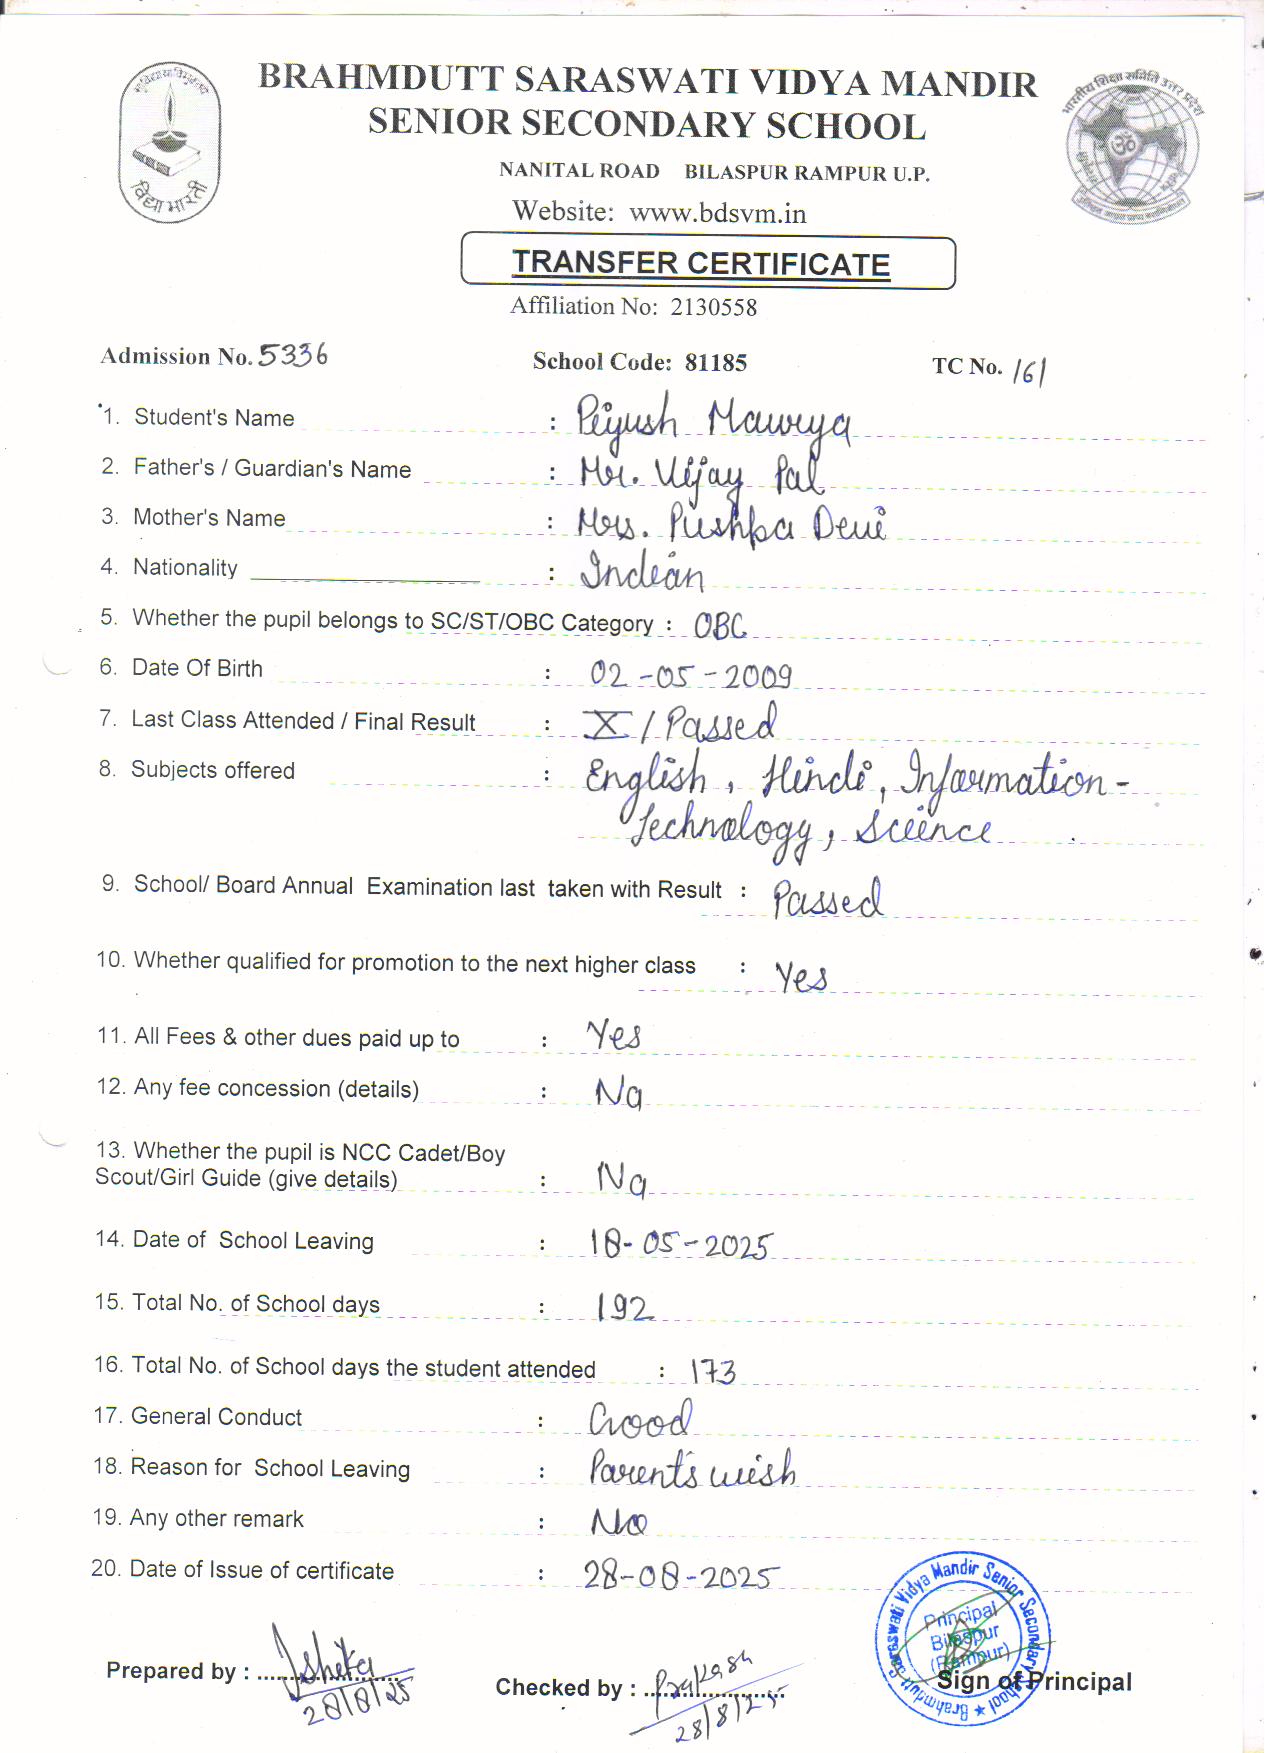 BRAHMDUTT SARASWATI VIDYA MANDIR
SENIOR SECONDARY SCHOOL
NANITAL ROAD BILASPUR RAMPUR U.P.
Website: www.bdsvm.in
विद्या भारती
TRANSFER CERTIFICATE
Affiliation No: 2130558
Admission No. 5336 School Code: 81185 TC No. 161
1. Student's Name : Piyush Maurya
2. Father's / Guardian's Name : Mr. Vijay Pal
3. Mother's Name : Mrs. Pushpa Devi
4. Nationality : Indian
5. Whether the pupil belongs to SC/ST/OBC Category : OBC
6. Date Of Birth : 02-05-2009
7. Last Class Attended / Final Result : X / Passed
8. Subjects offered : English, Hindi, Information -
Technology, Science
9. School/ Board Annual Examination last taken with Result : Passed
10. Whether qualified for promotion to the next higher class : Yes
11. All Fees & other dues paid up to : Yes
12. Any fee concession (details) : No
13. Whether the pupil is NCC Cadet/Boy
Scout/Girl Guide (give details) : No
14. Date of School Leaving : 18-05-2025
15. Total No. of School days : 192
16. Total No. of School days the student attended : 173
17. General Conduct : Good
18. Reason for School Leaving : Parent's wish
19. Any other remark : No
20. Date of Issue of certificate : 28-08-2025
Prepared by : Ishika
28/8/25
Checked by : Prakash
28/8/25
Brahmdutt Saraswati Vidya Mandir Senior Secondary School
Principal
Bilaspur
(Rampur)
Sign of Principal